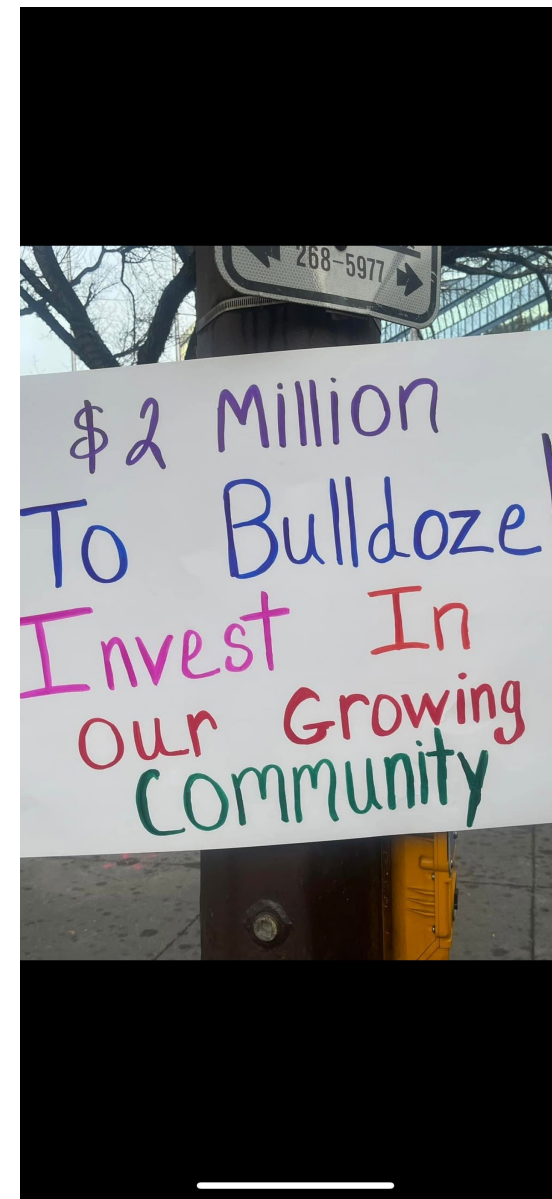 268-5977
$2 Million
To Bulldoze
Invest In
our Growing
Community